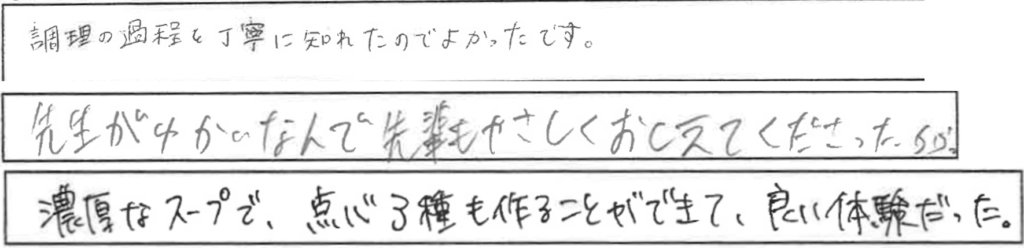 調理の過程を丁寧に知れたのでよかったです。
先生がゆかいなんで先輩もやさしくおしえてくださった
濃厚なスープで、点心3種も作ることができて、良い体験だった。